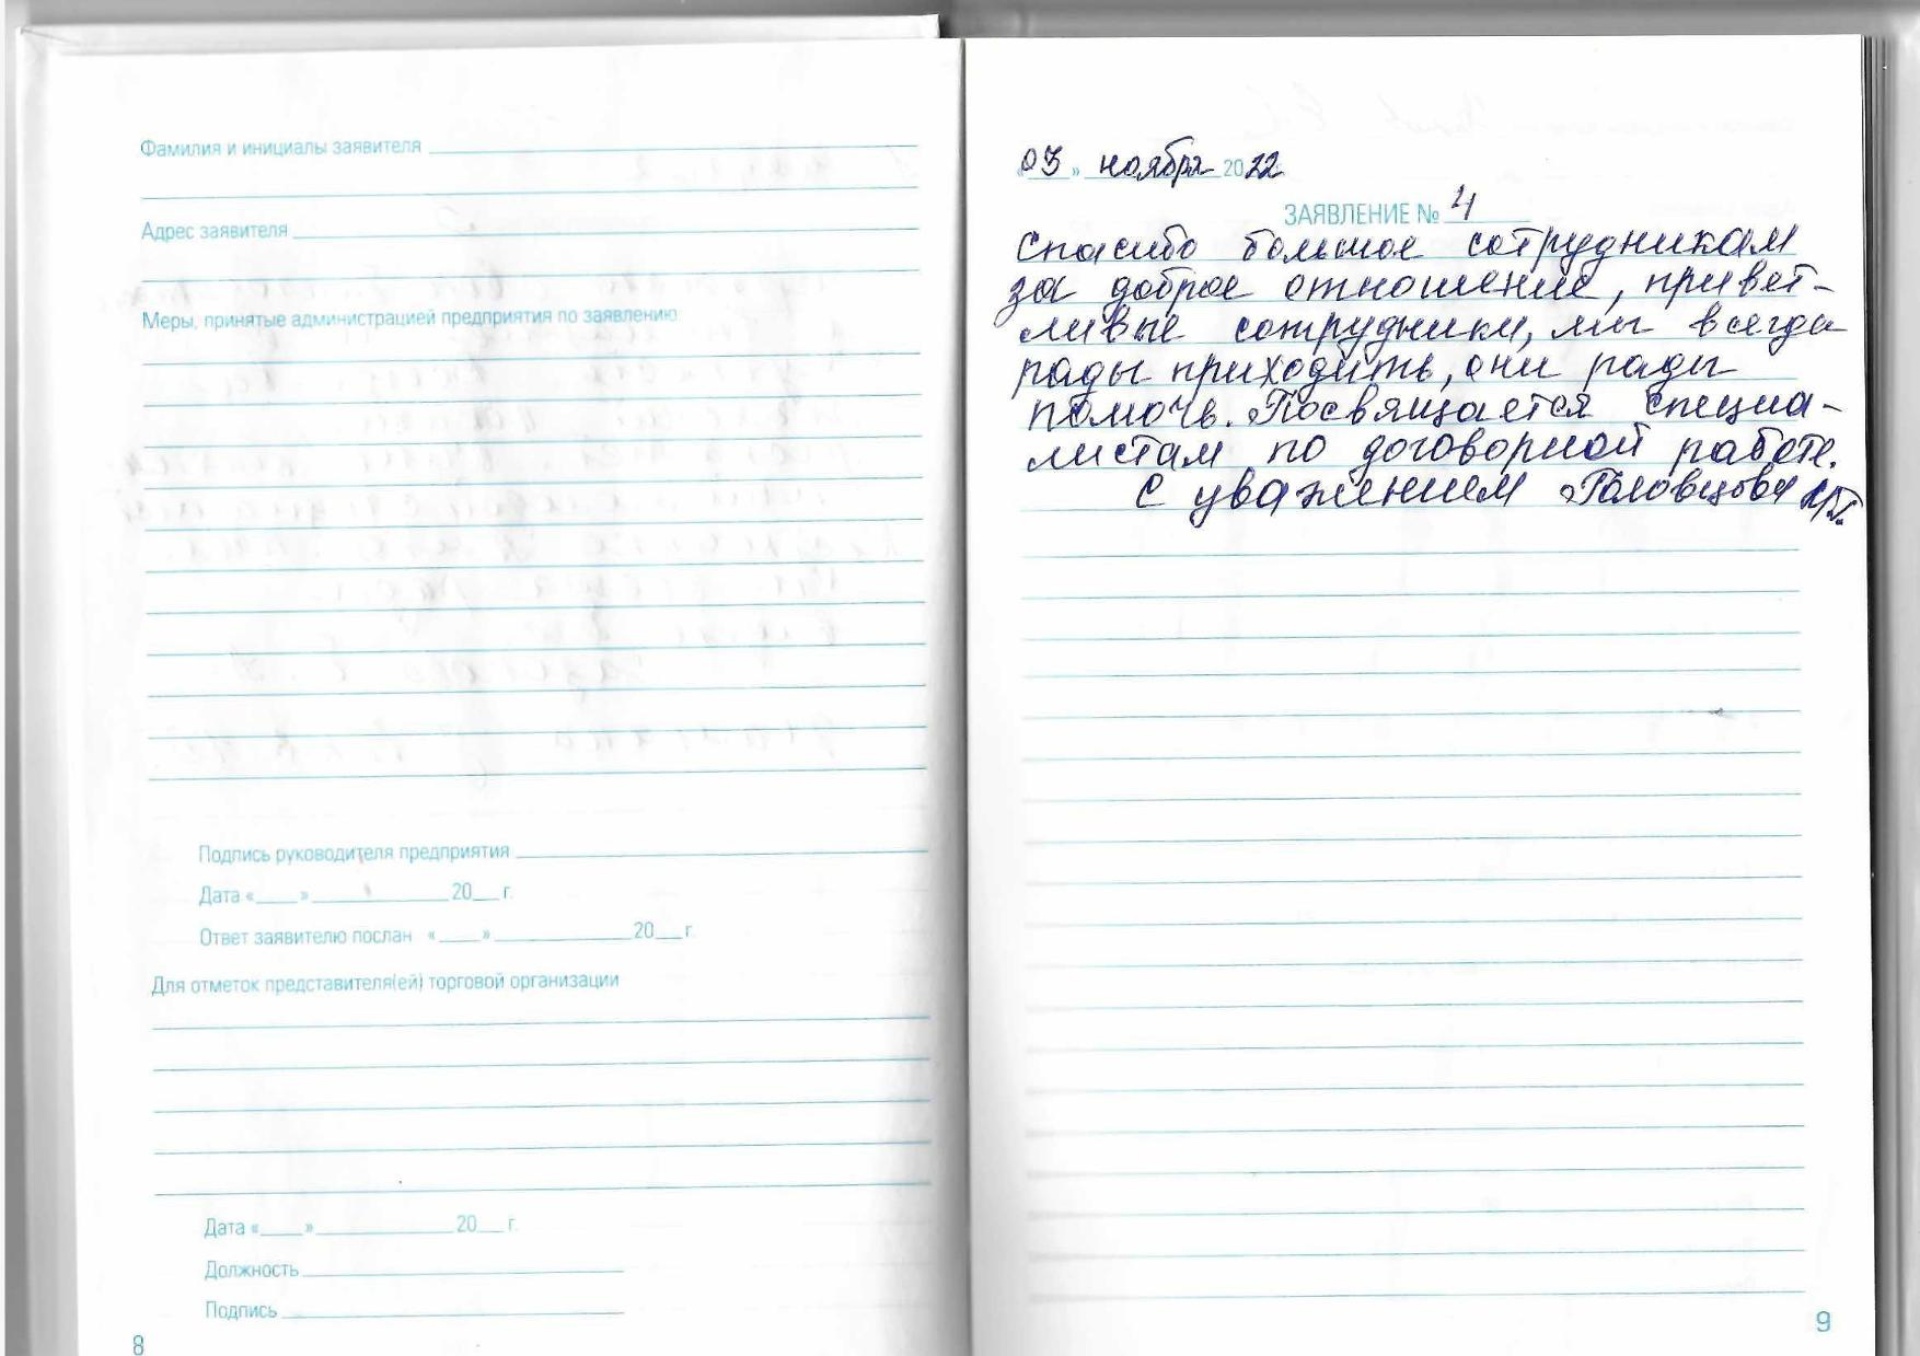 Фамилия и инициалы заявителя
Адрес заявителя
Меры, принятые администрацией предприятия по заявлению
Подпись руководителя предприятия
Дата «____»____________20___г.
Ответ заявителю послан «____»____________20___г.
Для отметок представителя(ей) торговой организации
Дата «____»____________20___г.
Должность
Подпись
8
«03» ноября 2022
ЗАЯВЛЕНИЕ № 4
Спасибо большое сотрудникам
за доброе отношение, привет-
ливые сотрудники, мы всегда
рады приходить, они рады
помочь. Посвящается специа-
листам по договорной работе.
С уважением Половцова
9